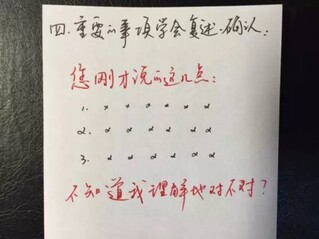 四.重要的事项学会复述、确认：
您刚才说的这几点：
1. x x x x x x
2. x x x x x x
3. x x x x x x
不知道我理解地对不对？